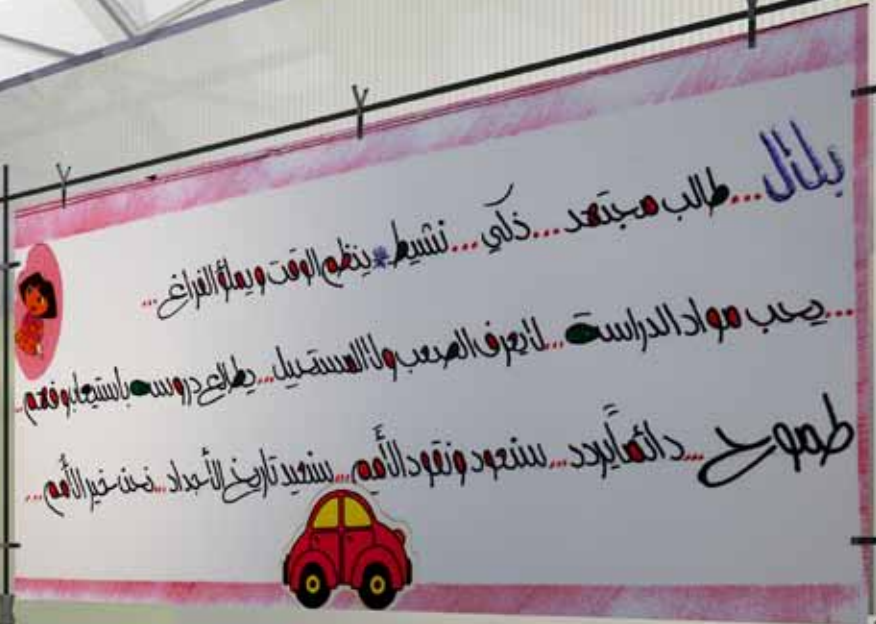 بلال... طالب مجتهد... ذكي... نشيط * ينظم الوقت ويملؤ الفراغ...
...يحب مواد الدراسة... لا يعرف الصعب ولا المستحيل... يطالع دروسه باستيعاب وفهم..
طموح... دائماً يردد... سنعود ونقود الأمم... سنعيد تاريخ الأجداد... نحن خير الأمم...